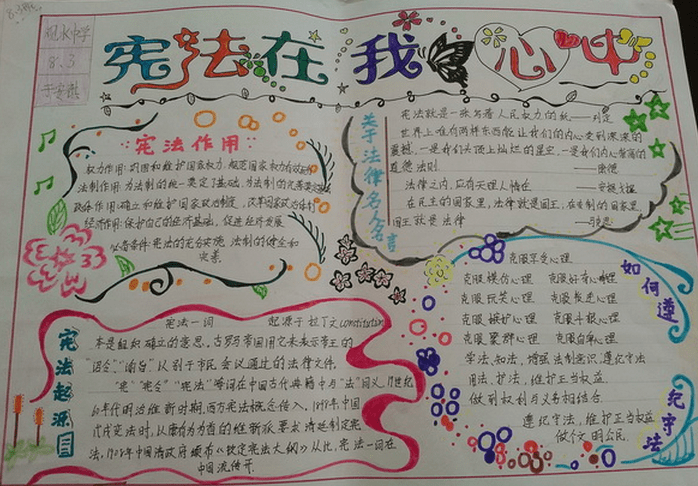 8.3班
凤水中学
8、3
宪法在我心中
宪法作用
权力作用：巩固和维护国家权力，规范国家权力有效运行
法制作用：为法制的统一奠定了基础，为法制的完善奠定
政体作用：确立和维护国家政治制度，改革国家政治体制
经济作用：保护自己的经济基础，促进经济发展
必备条件：宪法的充分实施，法制的健全和
完善
关于法律名人名言
宪法就是一张写着人民权力的纸——列宁
世界上唯有两样东西能让我们的内心受到深深的
震撼，一是我们头顶上灿烂的星空，一是我们内心崇高的
道德法则
——康德
法律之内，应有天理人情在 ——安提戈涅
在民主的国家里，法律就是国王，在专制的国家里，
国王就是法律 ——马克思
宪法起源
宪法一词 起源于拉丁文constitution
本是组织确立的意思，古罗马帝国用它来表示帝王的
“诏令”“谕旨”以别于市民会议通过的法律文件.
“宪”“宪令”“宪法”等词在中国古代典籍中与“法”同义，19世纪
60年代明治维新时期，西方宪法概念传入，1898年，中国
戊戌变法时，以康有为为首的维新派要求清廷制定宪
法，1908年中国清政府颁布《钦定宪法大纲》从此，宪法一词在
中国流传开.
如何遵纪守法
克服享受心理
克服模仿心理 克服好奇心理
克服玩笑心理 克服报复心理
克服嫉妒心理 克服斗狠心理
克服聚群心理 克服自卑心理
学法、知法，增强法制意识，遵纪守法
用法、护法，维护正当权益.
做到权利与义务相结合.
遵纪守法，维护正当权益
做文明公民.